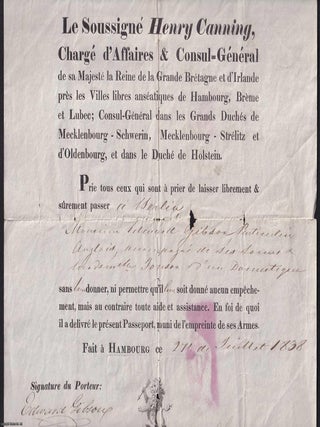 Le Soussigné Henry Canning,
Chargé d'Affaires & Consul-Général
de sa Majesté la Reine de la Grande Brétagne et d'Irlande
près les Villes libres anséatiques de Hambourg, Brème
et Lubec; Consul-Général dans les Grands Duchés de
Mecklenbourg-Schwerin, Mecklenbourg-Strélitz et
d'Oldenbourg, et dans le Duché de Holstein.
Prie tous ceux qui sont à prier de laisser librement &
sûrement passer a Berlin
Monsieur Edward Gibson Particulier
Anglois, accompagné de ses Soeurs &
d'un Domestique
sans donner, ni permettre qu'il soit donné aucun empêche-
ment, mais au contraire toute aide et assistance. En foi de quoi
il a délivré le présent Passeport, muni de l'empreinte de ses Armes.
Fait à HAMBOURG ce Juillet 1838
Signature du Porteur:
Edward Gibson